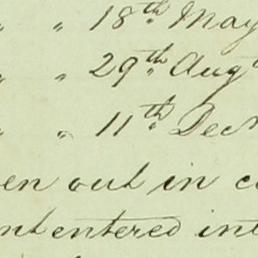 " " 18th May
" " 29th Aug
" " 11th Dec
en out in c
nt entered in